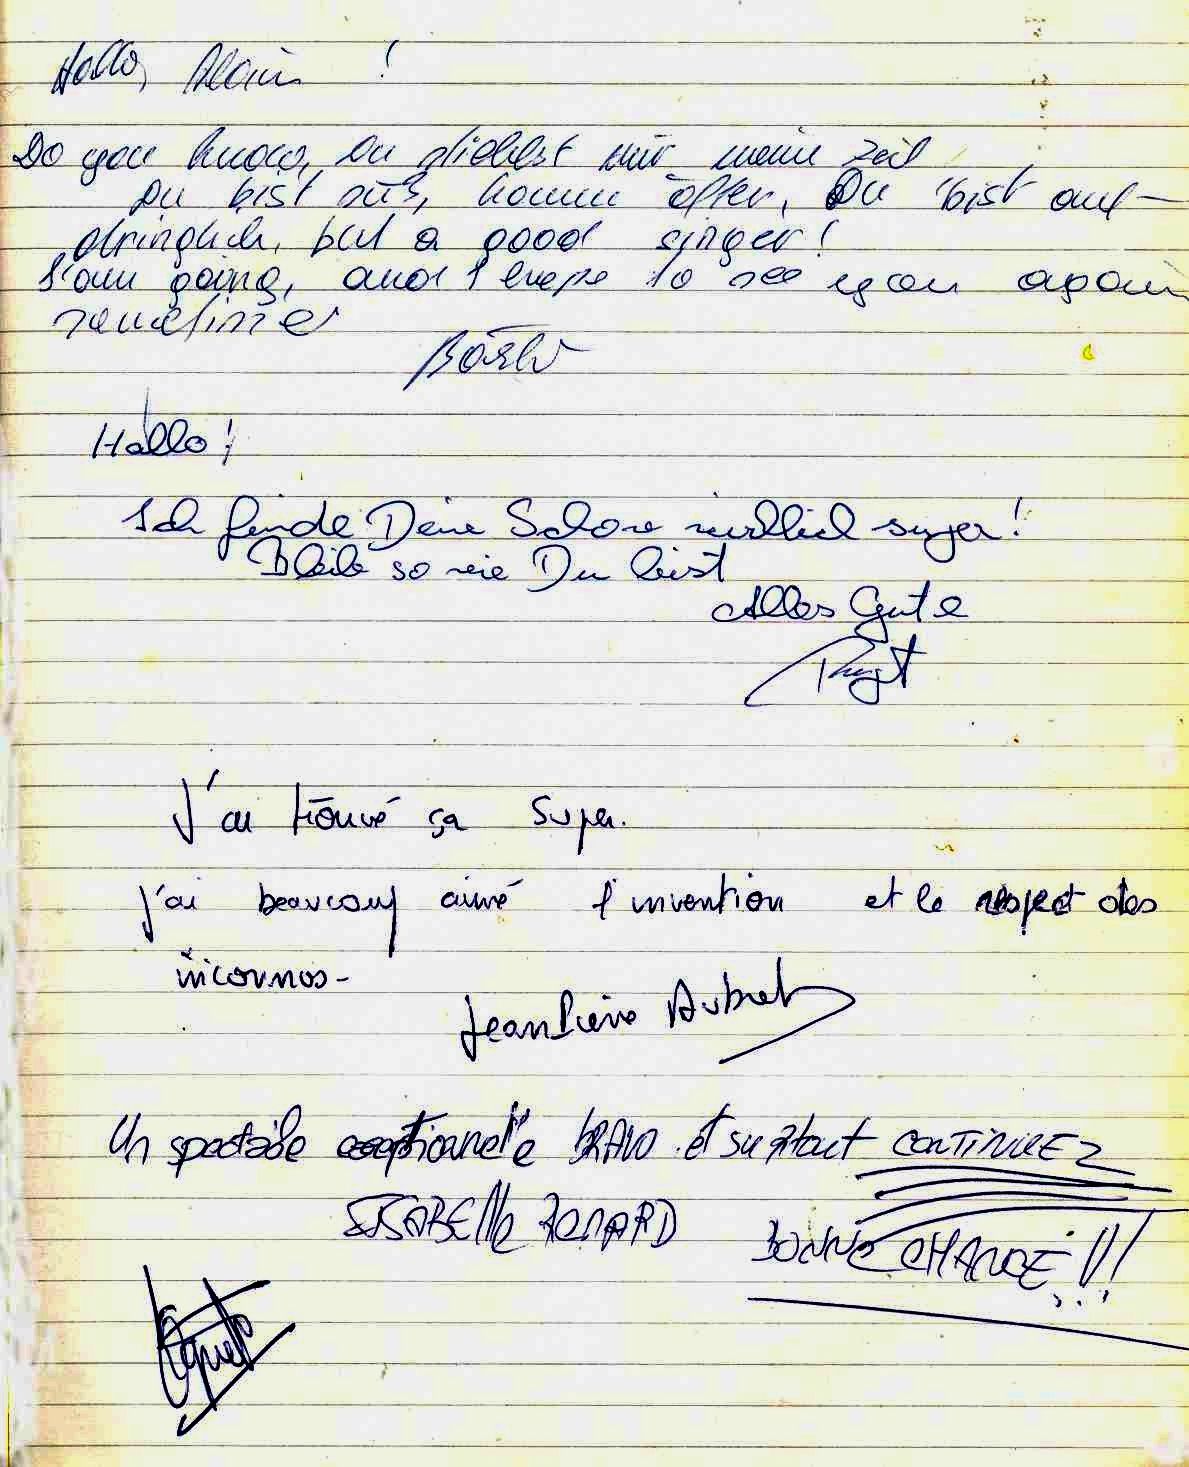 Hallo, Alain !
Do you know, Du stiehlst mir meine Zeit
Du bist süß, komm öfter, Du bist auf-
dringlich, but a good singer!
I'am going, and I hope to see you again
sometimes
Hallo!
Ich finde Deine Schow wirklich super!
Bleib so wie Du bist
Alles Gute
J'ai trouvé ça super.
J'ai beaucoup aimé l'invention et le respect des
inconnos-
Jean Pierre Aubret
Un spectacle exceptionnelle BRAVO et surtout CONTINUEZ
ISABELLE RENARD
BONNE CHANCE !!!